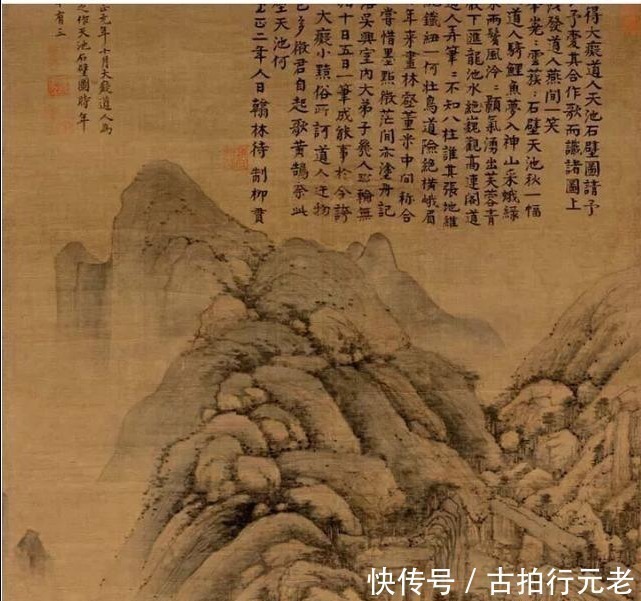 得大癡道人天池石壁圖請予
予愛其合作歌而識諸圖上
發道人燕間一笑
雲荻：石壁天池秋一幅
道人騎鯉魚夢入神山采蛾綠
雨鬢風泠：顥氣湧出芙蓉青
下匯龍池水絕巍觀高連閣道
道人弄筆：不知八柱誰其張地維
鐵紐一何壯鳥道險絕橫峨眉
年来畫林壑董米中間称合
嘗惜墨點微茫間亦塗丹記
吳興室内大弟子幾人恥輸無
十日五日一筆成能事於今誇
大癡小黠俗所訶道人迂物
已多微君自起歌黃鵠奈此
天池何
至正二年人日翰林待制柳貫
正元年十月大癡道人為
之作天池石壁圖時年
有三
快传号 / 古拍行元老